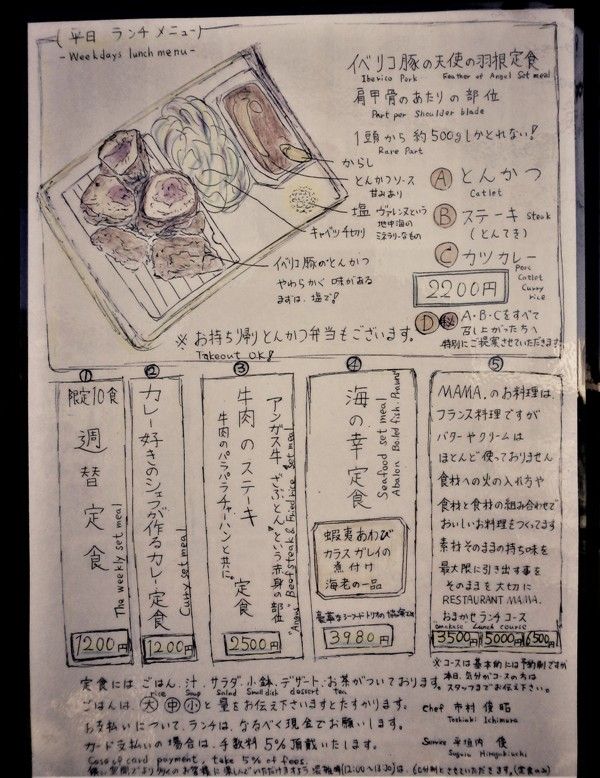 (平日 ランチメニュー)
- Weekdays lunch menu -
イベリコ豚の天使の羽根定食
Iberico Pork Feather of Angel Set meal
肩甲骨のあたりの部位
Part per Shoulder blade
1頭から約500gしかとれない!
Rare Part
からし
とんかつソース
甘みあり
塩 ヴァレンヌという
地中海の
ミネラリーなもの
キャベツ千切り
イベリコ豚のとんかつ
やわらかく味がある
まずは、塩で!
Ⓐ とんかつ
Catlet
Ⓑ ステーキ Steak
(とんてき)
Ⓒ カツカレー
Pork Catlet Curry rice
2200円
Ⓓ ㊙ A・B・Cをすべて
召し上がった方へ
特別にご提案させていただきます
※お持ち帰りとんかつ弁当もございます。
Takeout OK!
①
限定10食
週替定食
The weekly set meal
1200円
②
カレー好きのシェフが作るカレー定食
Curry set meal
1200円
③
アンガス牛"ざぶとん"という赤身の部位
牛肉のステーキ
牛肉のパラパラチャーハンと共に。
定食
"Angus" Beef steak & Fried rice Set meal
2500円
④
海の幸定食
Seafood set meal
Abalon Boiled fish. Prawns
蝦夷あわび
カラスガレイの
煮付け
海老の一品
3980円
⑤
MAMA.のお料理は
フランス料理ですが
バターやクリームは
ほとんど使っておりません
食材への火の入れ方や
食材と食材の組み合わせで
おいしいお料理をつくってます
素材そのままの持ち味を
最大限に引き出す事を
そのままを大切に
RESTAURANT MAMA.
おまかせランチコース
Omakase Lunch course
3500円 5000円 6500円
※コースは基本的には予約制ですが
本日、気分がコースの方は
スタッフまでお伝え下さい。
定食には ごはん、汁、サラダ、小鉢、デザート、お茶がついております。
rice Soup Salad Small dish dessert Tea
ごはんは、大 中 小 と量をお伝えいますとたすかります。
お支払いについて、ランチは、なるべく現金でお願いします。
カード支払いの場合は、手数料5%頂戴いたします。
Case of card payment, take 5% of fees.
Chef 市村 俊昭
Toshiaki Ichimura
Service 平垣内 優